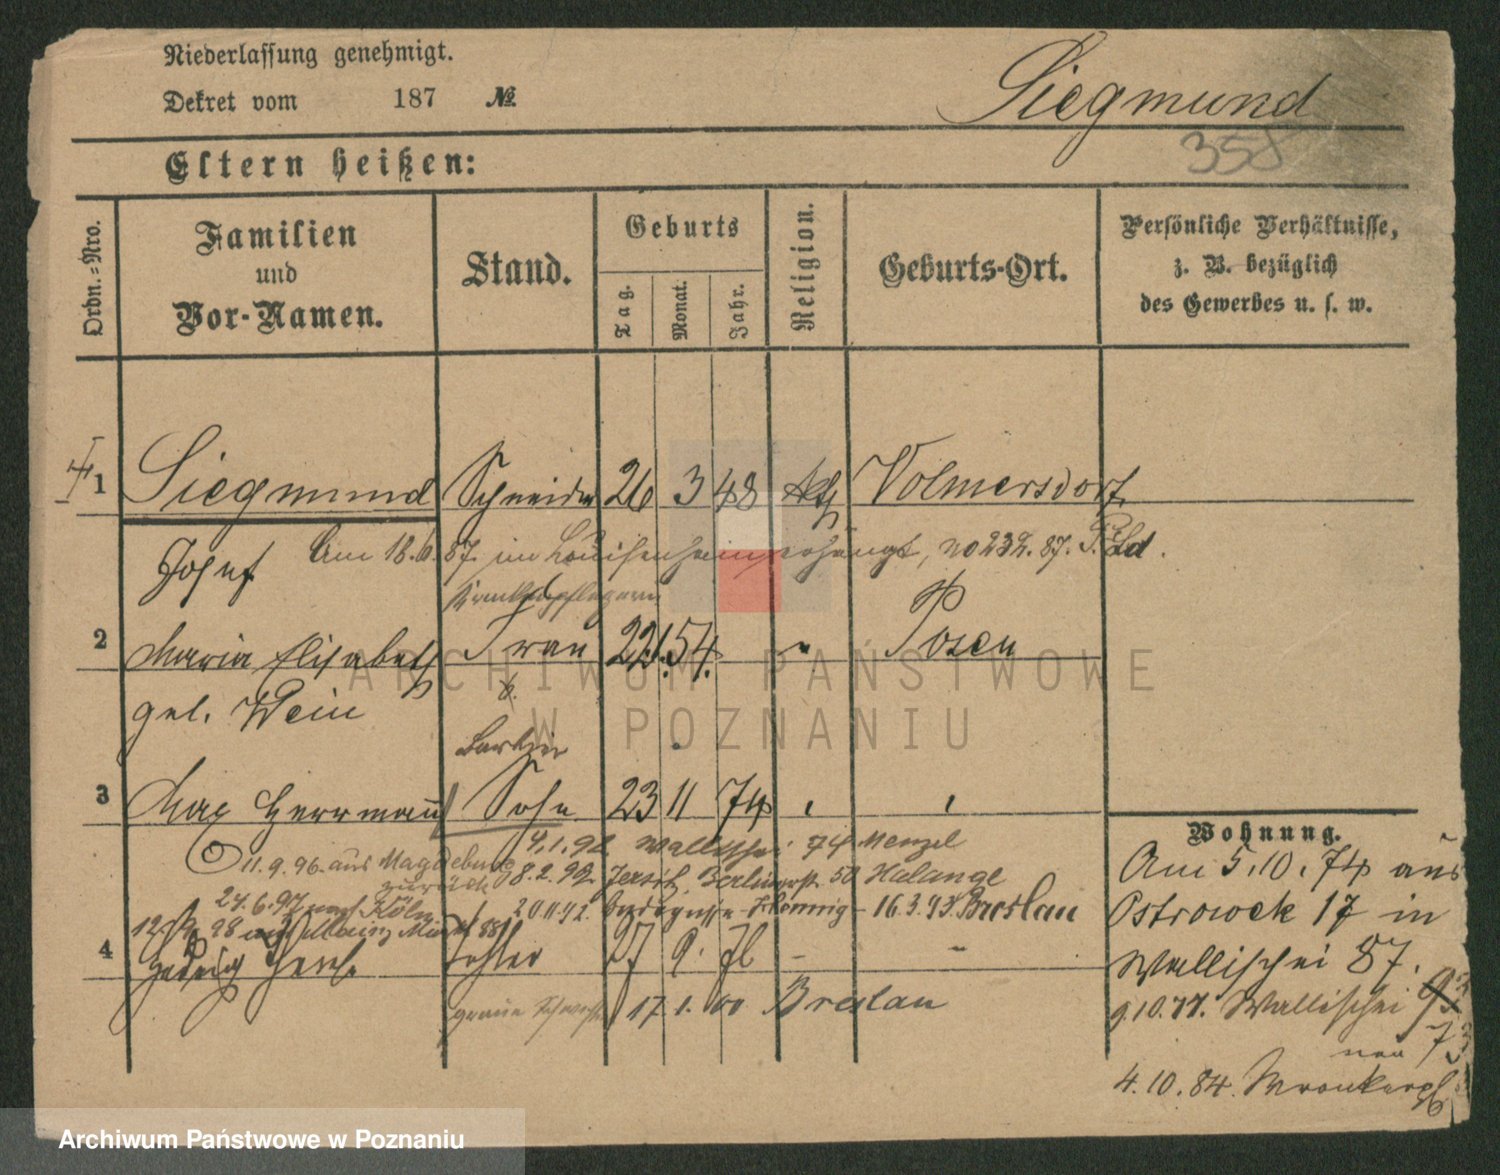 Niederlassung genehmigt.
Dekret vom 187 №
Siegmund
358
Eltern heißen:
Ordn.=Nro.
Familien
und
Vor-Namen.
Stand.
Geburts
Tag.
Monat.
Jahr.
Religion.
Geburts-Ort.
Persönliche Verhältnisse,
z. B. bezüglich
des Gewerbes u. s. w.
1 Siegmund Schneider 26 3 48 kth Volmersdorf
Josef Am 18.6.87. im Louisenhain erhängt, no 232. 87. P.
Krankenpflegerin
2 Maria Elisabeth Frau 22 1. 54. " Posen
geb. Wein
Barbier
3 Max Herrmann Sohn 23 11 74
4.1.92 Wallischei 74 Menzel
11.9.96 aus Magdeburg
zurück
8.2.92. Jersitz, Berlinerstr. 50
24.6.97 nach Köln
20.11.92. 16.3.93. Breslau
98 Mainz
4 Hedwig Tochter 27 9.
graue Schwester 17. 1. 00 Breslau
Wohnung.
Am 5.10.74 aus
Ostrowek 17 in
Wallischei 87.
9.10.77. Wallischei 93
neu 73
4.10.84. Wronkerpl
ARCHIWUM PAŃSTWOWE
W POZNANIU
Archiwum Państwowe w Poznaniu